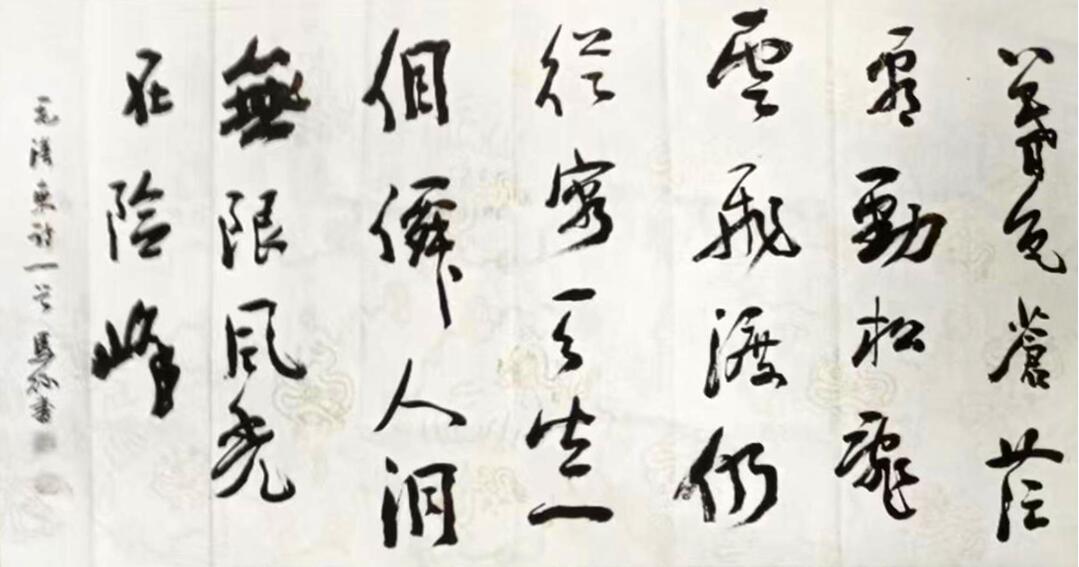 暮色蒼茫
看勁松亂
雲飛渡仍
從容天生一
個僊人洞
無限風光
在險峰
毛澤東詩一首 馬書